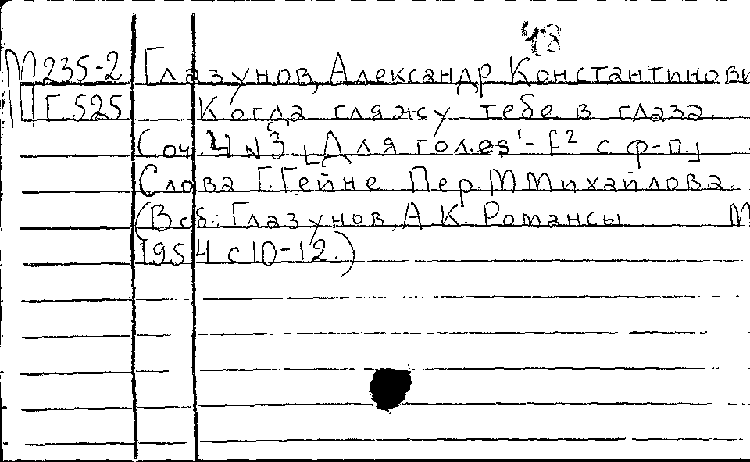 48
М235-2 Глазунов, Александр Константинови
Г525 Когда гляжу тебе в глаза.
Соч. 4 №3. [Для гол. es¹-f² с ф-п.]
Слова Г. Гейне. Пер. М Михайлова.
(В сб.: Глазунов, А. К. Романсы М
1954 с 10-12.)